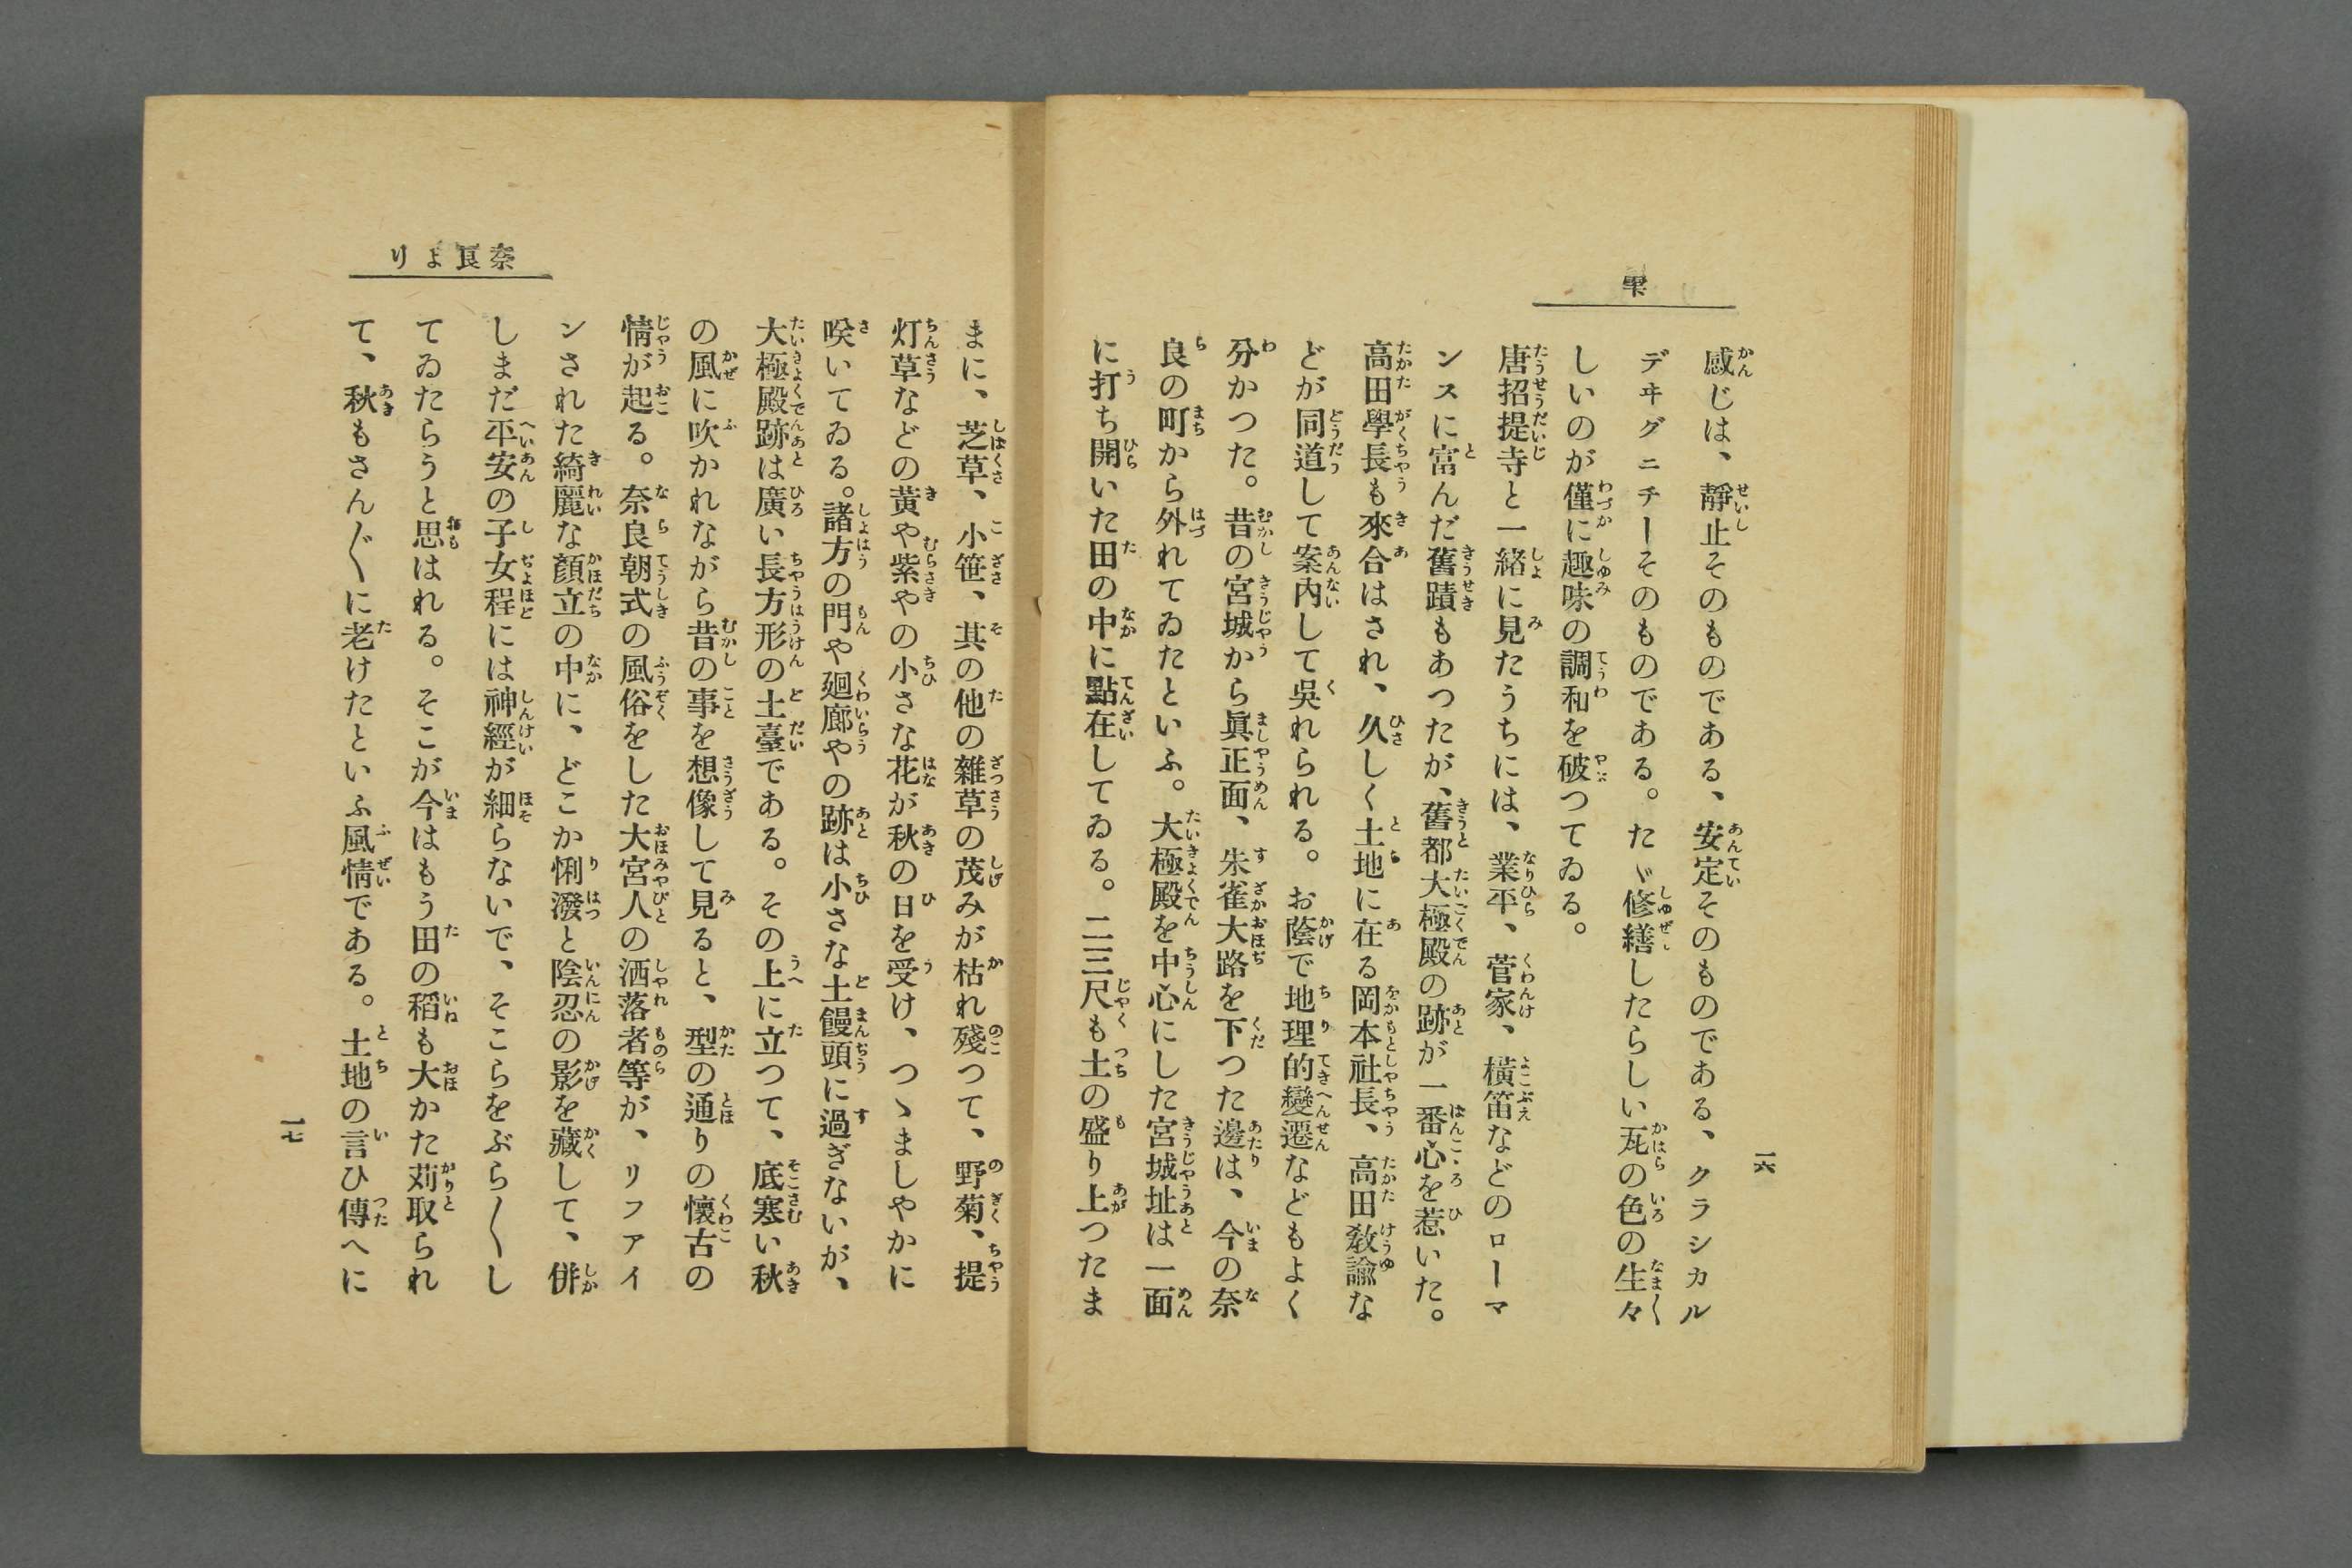 雫
一六
感じは、靜止そのものである、安定そのものである、クラシカル
デヰグニチーそのものである。たゞ修繕したらしい瓦の色の生々
しいのが僅に趣味の調和を破つてゐる。
唐招提寺と一緒に見たうちには、業平、菅家、橫笛などのローマ
ンスに富んだ舊蹟もあつたが、舊都大極殿の跡が一番心を惹いた。
高田學長も來合はされ、久しく土地に在る岡本社長、高田敎諭な
どが同道して案内して吳れられる。お蔭で地理的變遷などもよく
分かつた。昔の宮城から眞正面、朱雀大路を下つた邊は、今の奈
良の町から外れてゐたといふ。大極殿を中心にした宮城址は一面
に打ち開いた田の中に點在してゐる。二三尺も土の盛り上つたま
奈良より
まに、芝草、小笹、其の他の雜草の茂みが枯れ殘つて、野菊、提
灯草などの黄や紫やの小さな花が秋の日を受け、つゝましやかに
咲いてゐる。諸方の門や廻廊やの跡は小さな土饅頭に過ぎないが、
大極殿跡は廣い長方形の土臺である。その上に立つて、底寒い秋
の風に吹かれながら昔の事を想像して見ると、型の通りの懷古の
情が起る。奈良朝式の風俗をした大宮人の洒落者等が、リファイ
ンされた綺麗な顏立の中に、どこか悧潑と陰忍の影を藏して、併
しまだ平安の子女程には神經が細らないで、そこらをぶら〳〵し
てゐたらうと思はれる。そこが今はもう田の稻も大かた苅取られ
て、秋もさん〴〵に老けたといふ風情である。土地の言ひ傳へに
一七